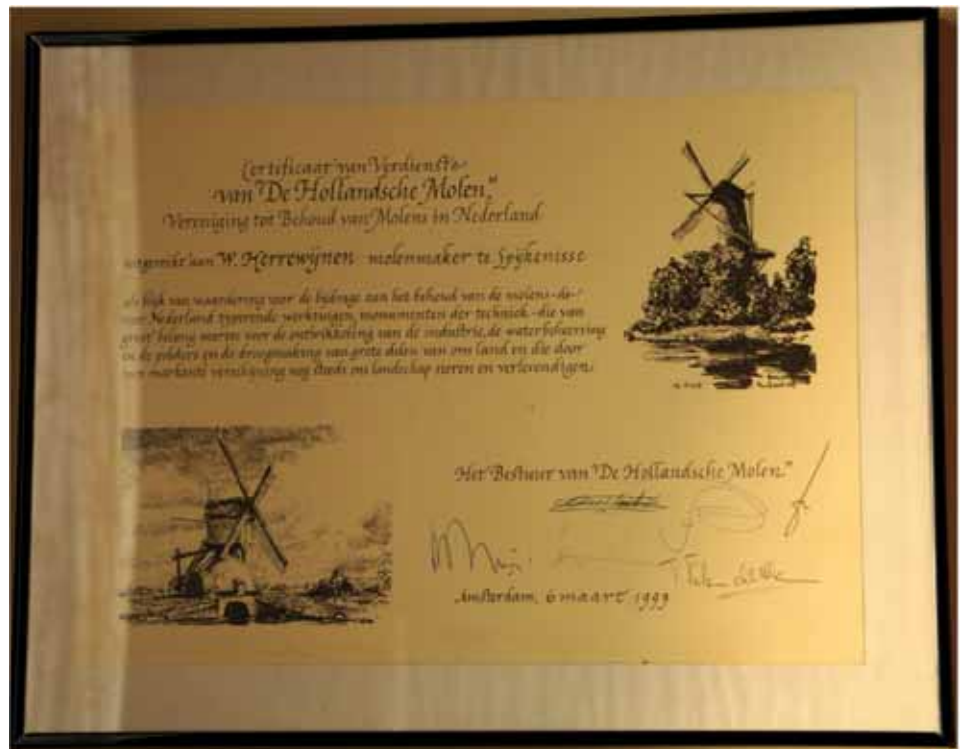 Certificaat van Verdienste
van "De Hollandsche Molen,"
Vereniging tot Behoud van Molens in Nederland
aan W. Herrewijnen molenmaker te Spijkenisse
als blijk van waardering voor de bijdrage aan het behoud van de molens-de
voor Nederland typerende werktuigen, monumenten der techniek-die van
groot belang waren voor de ontwikkeling van de industrie, de waterbeheersing
in de polders en de droogmaking van grote delen van ons land en die door
hun markante verschijning nog steeds ons landschap sieren en verlevendigen.
Het Bestuur van "De Hollandsche Molen."
Amsterdam, 6 maart 1999